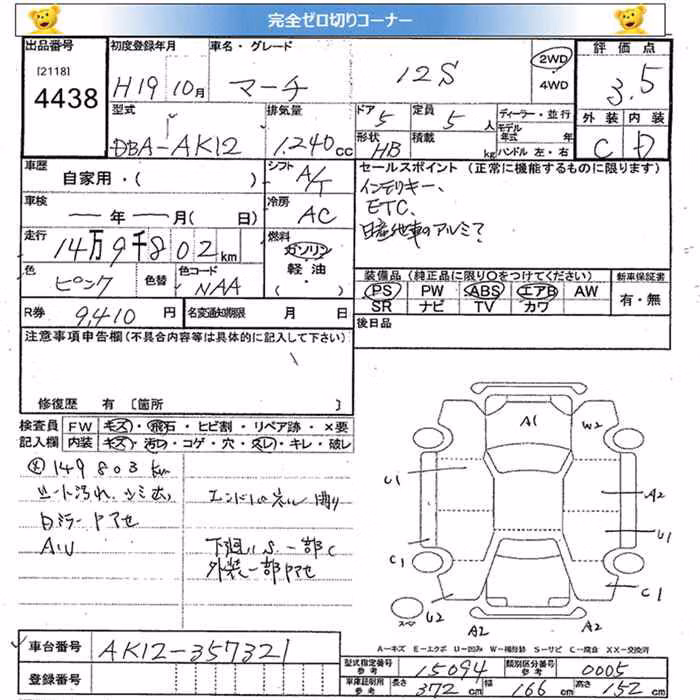 完全ゼロ切りコーナー
出品番号
[2118]
4438
初度登録年月
H19 10月
車名・グレード
マーチ 12S
2WD
4WD
評価点
3.5
外装 内装
C D
型式
DBA-AK12
排気量
1,240cc
ドア 5
定員 5人
形状 HB
積載 kg
ディーラー・並行
モデル年式 年
ハンドル 左・右
車歴
自家用・( )
シフト A/T
車検
年 月( 日)
冷房 AC
走行
14万9千802km
燃料
ガソリン
軽油・
( )
色
ピンク
色替
色コード
NAA
R券 9,410円
名変通知期限 月 日
セールスポイント (正常に機能するものに限ります)
インテリキー、
ETC、
装備品(純正品に限り○をつけてください)
PS PW ABS エアB AW
SR ナビ TV カワ
新車保証書
有・無
後日品
注意事項申告欄(不具合内容等は具体的に記入して下さい)
修復歴 有 [箇所 ]
検査員記入欄
FW キズ・飛石・ヒビ割・リペア跡・×要
内装 キズ・汚れ・コゲ・穴・スレ・キレ・破レ
149803km
シート汚れ、
A1
W2
U1
A2
U1
C1
C1
U2
A2
A2
スペア
A-キズ E-エクボ U-凹み W-補修跡 S-サビ C-腐食 XX-交換済
車台番号 AK12-357321
登録番号
型式指定番号 参考 15094
類別区分番号 参考 0005
車庫証明用 参考 長さ 372cm 幅 161cm 高さ 152cm